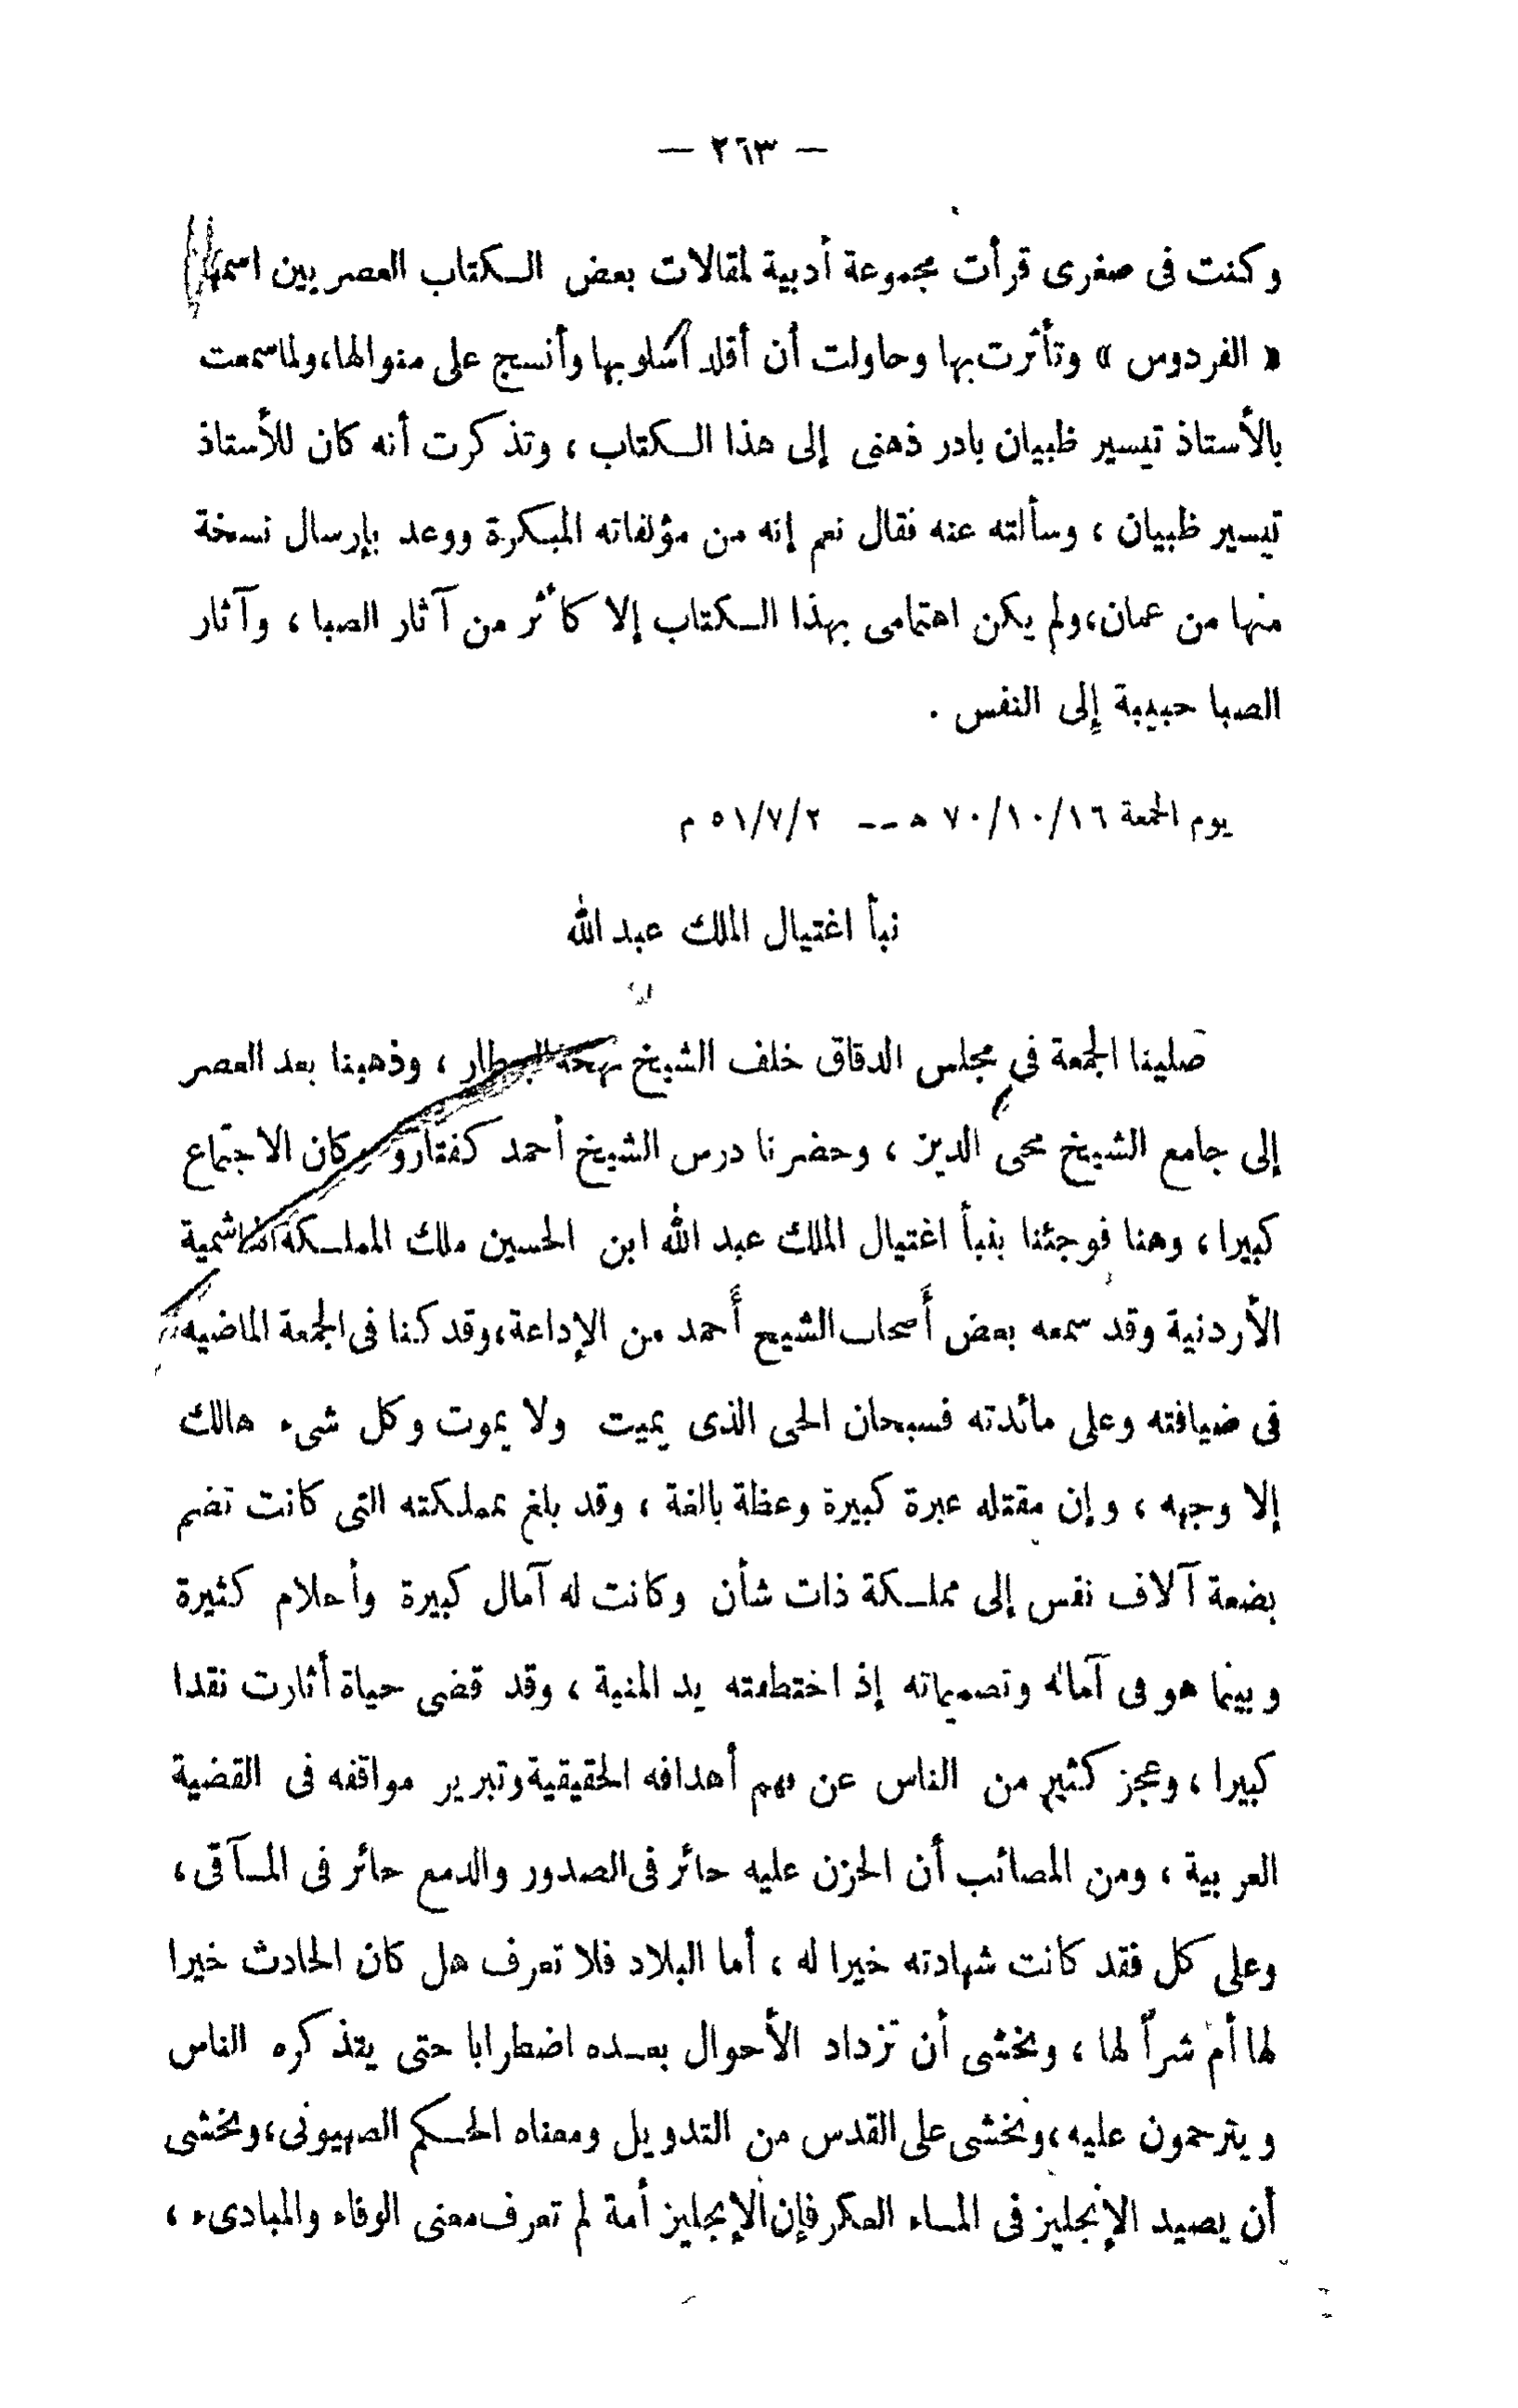 — ٢٦٣ —
وكنت فى صغرى قرأت مجموعة أدبية لمقالات بعض الكتاب العصريين اسمها
« الفردوس » وتأثرت بها وحاولت أن أقلد أسلوبها وأنسج على منوالها، ولما سمعت
بالأستاذ تيسير ظبيان بادر ذهنى إلى هذا الكتاب ، وتذكرت أنه كان للأستاذ
تيسير ظبيان ، وسألته عنه فقال نعم إنه من مؤلفاته المبكرة ووعد بإرسال نسخة
منها من عمان، ولم يكن اهتمامى بهذا الكتاب إلا كأثر من آثار الصبا ، وآثار
الصبا حبيبة إلى النفس .
يوم الجمعة ٧٠/١٠/١٦ ه -- ٥١/٧/٢ م
نبأ اغتيال الملك عبد الله
صلينا الجمعة فى مجلس الدقاق خلف الشيخ بهجة البيطار ، وذهبنا بعد العصر
إلى جامع الشيخ محى الدين ، وحضرنا درس الشيخ أحمد كفتارو وكان الاجتماع
كبيرا ، وهنا فوجئنا بنبأ اغتيال الملك عبد الله ابن الحسين ملك المملكة الهاشمية
الأردنية وقد سمعه بعض أصحاب الشيخ أحمد من الإذاعة، وقد كنا فى الجمعة الماضية
فى ضيافته وعلى مائدته فسبحان الحى الذى يميت ولا يموت وكل شىء هالك
إلا وجهه ، وإن مقتله عبرة كبيرة وعظة بالغة ، وقد بلغ بمملكته التى كانت تضم
بضعة آلاف نفس إلى مملكة ذات شأن وكانت له آمال كبيرة وأحلام كثيرة
وبينما هو فى آماله وتصميماته إذ اختطفته يد المنية ، وقد قضى حياة أثارت نقدا
كبيرا ، وعجز كثير من الناس عن فهم أهدافه الحقيقية وتبرير مواقفه فى القضية
العربية ، ومن المصائب أن الحزن عليه حائر فى الصدور والدمع حائر فى المآقى ،
وعلى كل فقد كانت شهادته خيرا له ، أما البلاد فلا تعرف هل كان الحادث خيرا
لها أم شراً لها ، ونخشى أن تزداد الأحوال بعده اضطرابا حتى يتذكره الناس
ويترحمون عليه، ونخشى على القدس من التدويل ومعناه الحكم الصهيونى، ونخشى
أن يصيد الإنجليز فى الماء العكر فإن الإنجليز أمة لم تعرف معنى الوفاء والمبادىء ،